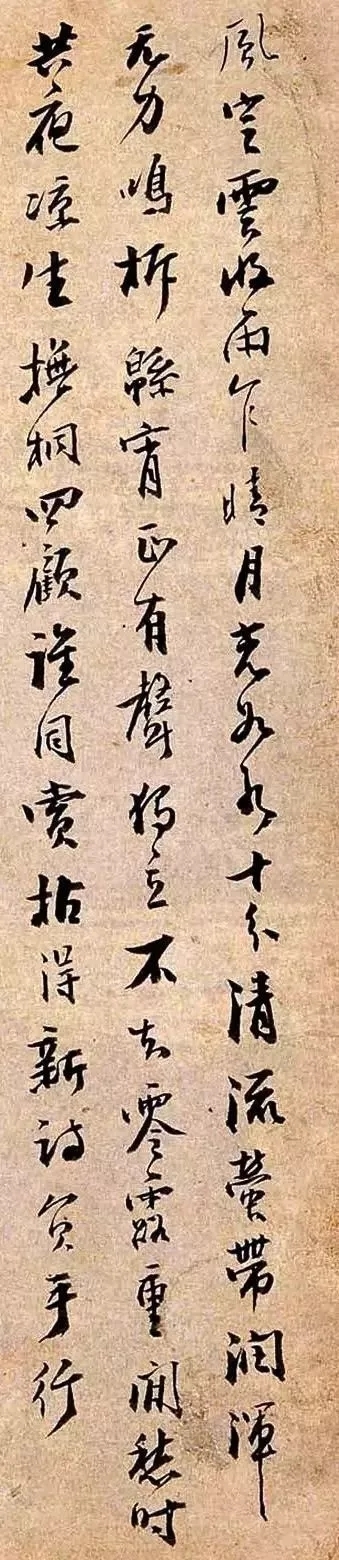 風定雲收雨乍晴月光如水十分清流螢帶潤渾
无力鳴柝緜宵正有聲獨立不知零露重閒愁時
共夜凉生撫桐四顧誰同賞拈得新詩負手行